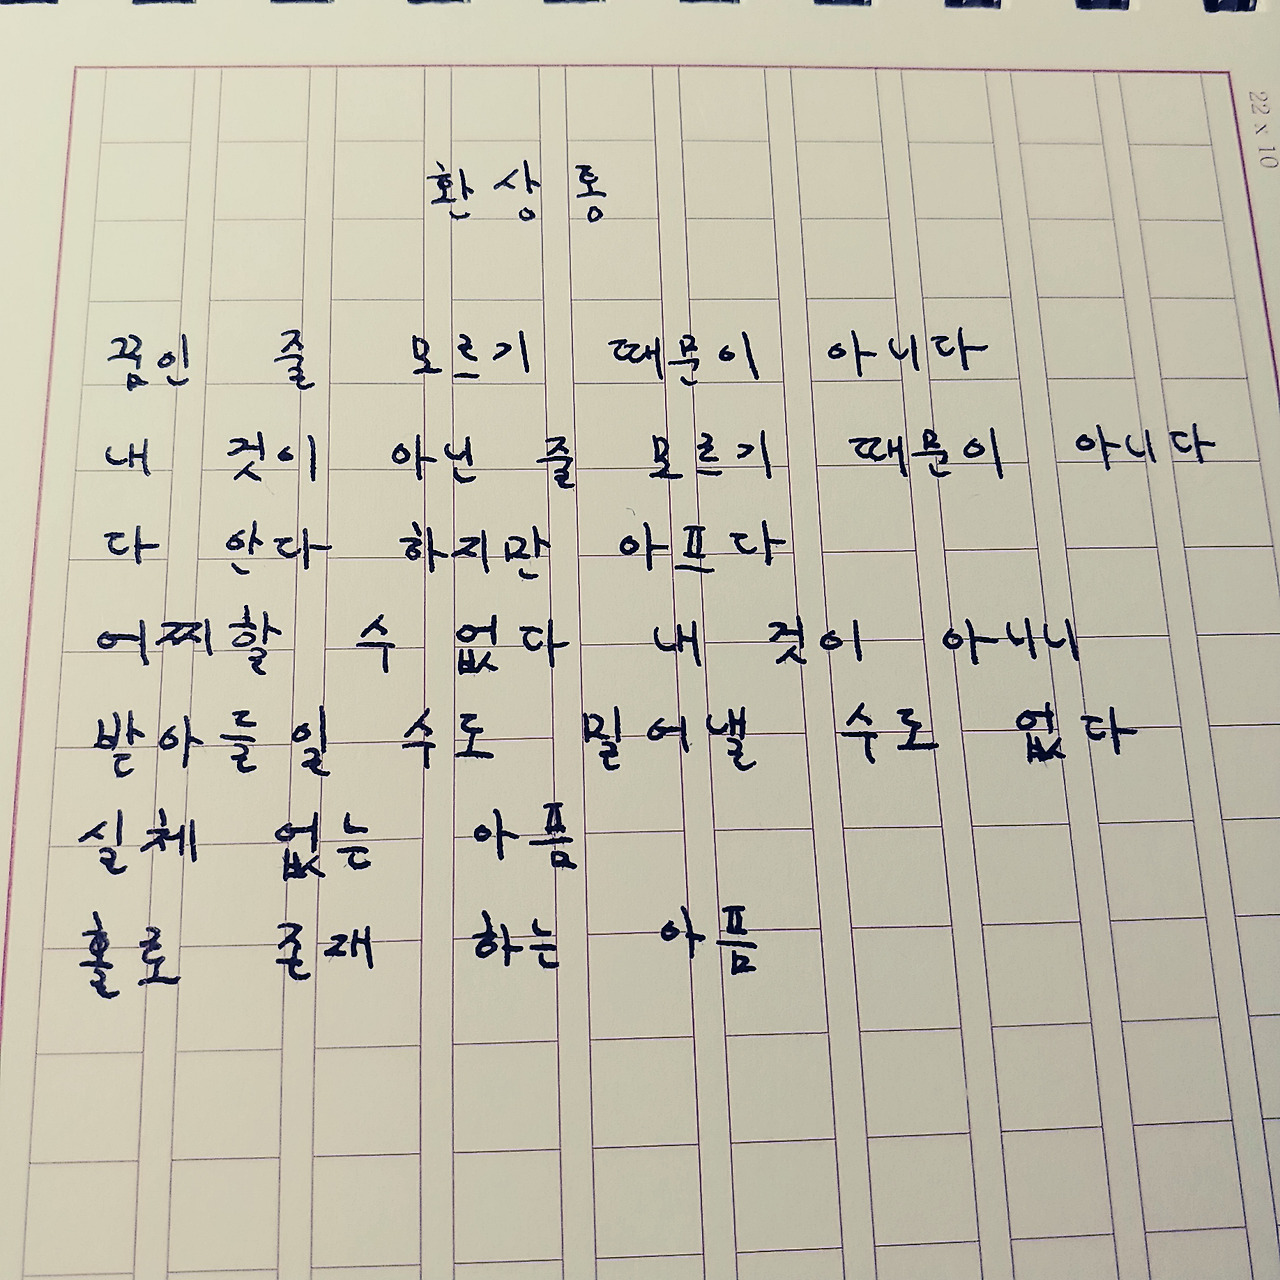 22 x 10
환상통
꿈인 줄 모르기 때문이 아니다
내 것이 아닌 줄 모르기 때문이 아니다
다 안다 하지만 아프다
어찌할 수 없다 내 것이 아니니
받아들일 수도 밀어낼 수도 없다
실체 없는 아픔
홀로 존재 하는 아픔